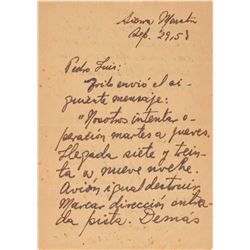 Sierra Maestra
Sep. 29, 58
Pedro Luis:
envió el si-
guiente mensaje:
"Nosotros intentar o-
peración martes a jueves.
Llegada siete y trein-
ta a nueve noche.
Avión igual destruir
Marcar dirección entra-
da pista. Demás